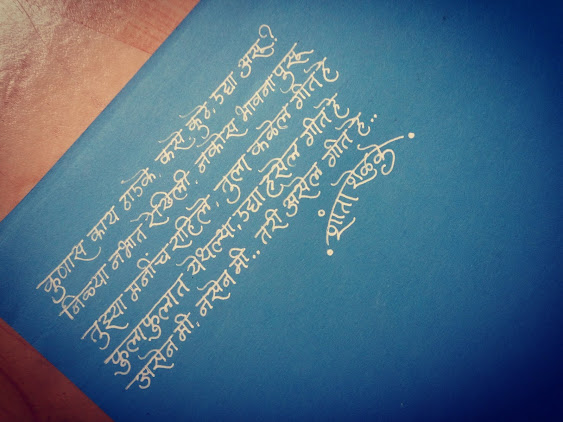 कुणास काय ठाऊके, कसे, कुठे, उद्या असू?
निळ्या नभात रेखिली, नकोस भावना पुसू
तुझ्या मनीच राहिले, तुला कळेल गीत हे
फुलाफुलात येथल्या, उद्या हसेल गीत हे
असेन मी, नसेन मी.. तरी असेल गीत हे..
• शांता शेळके •